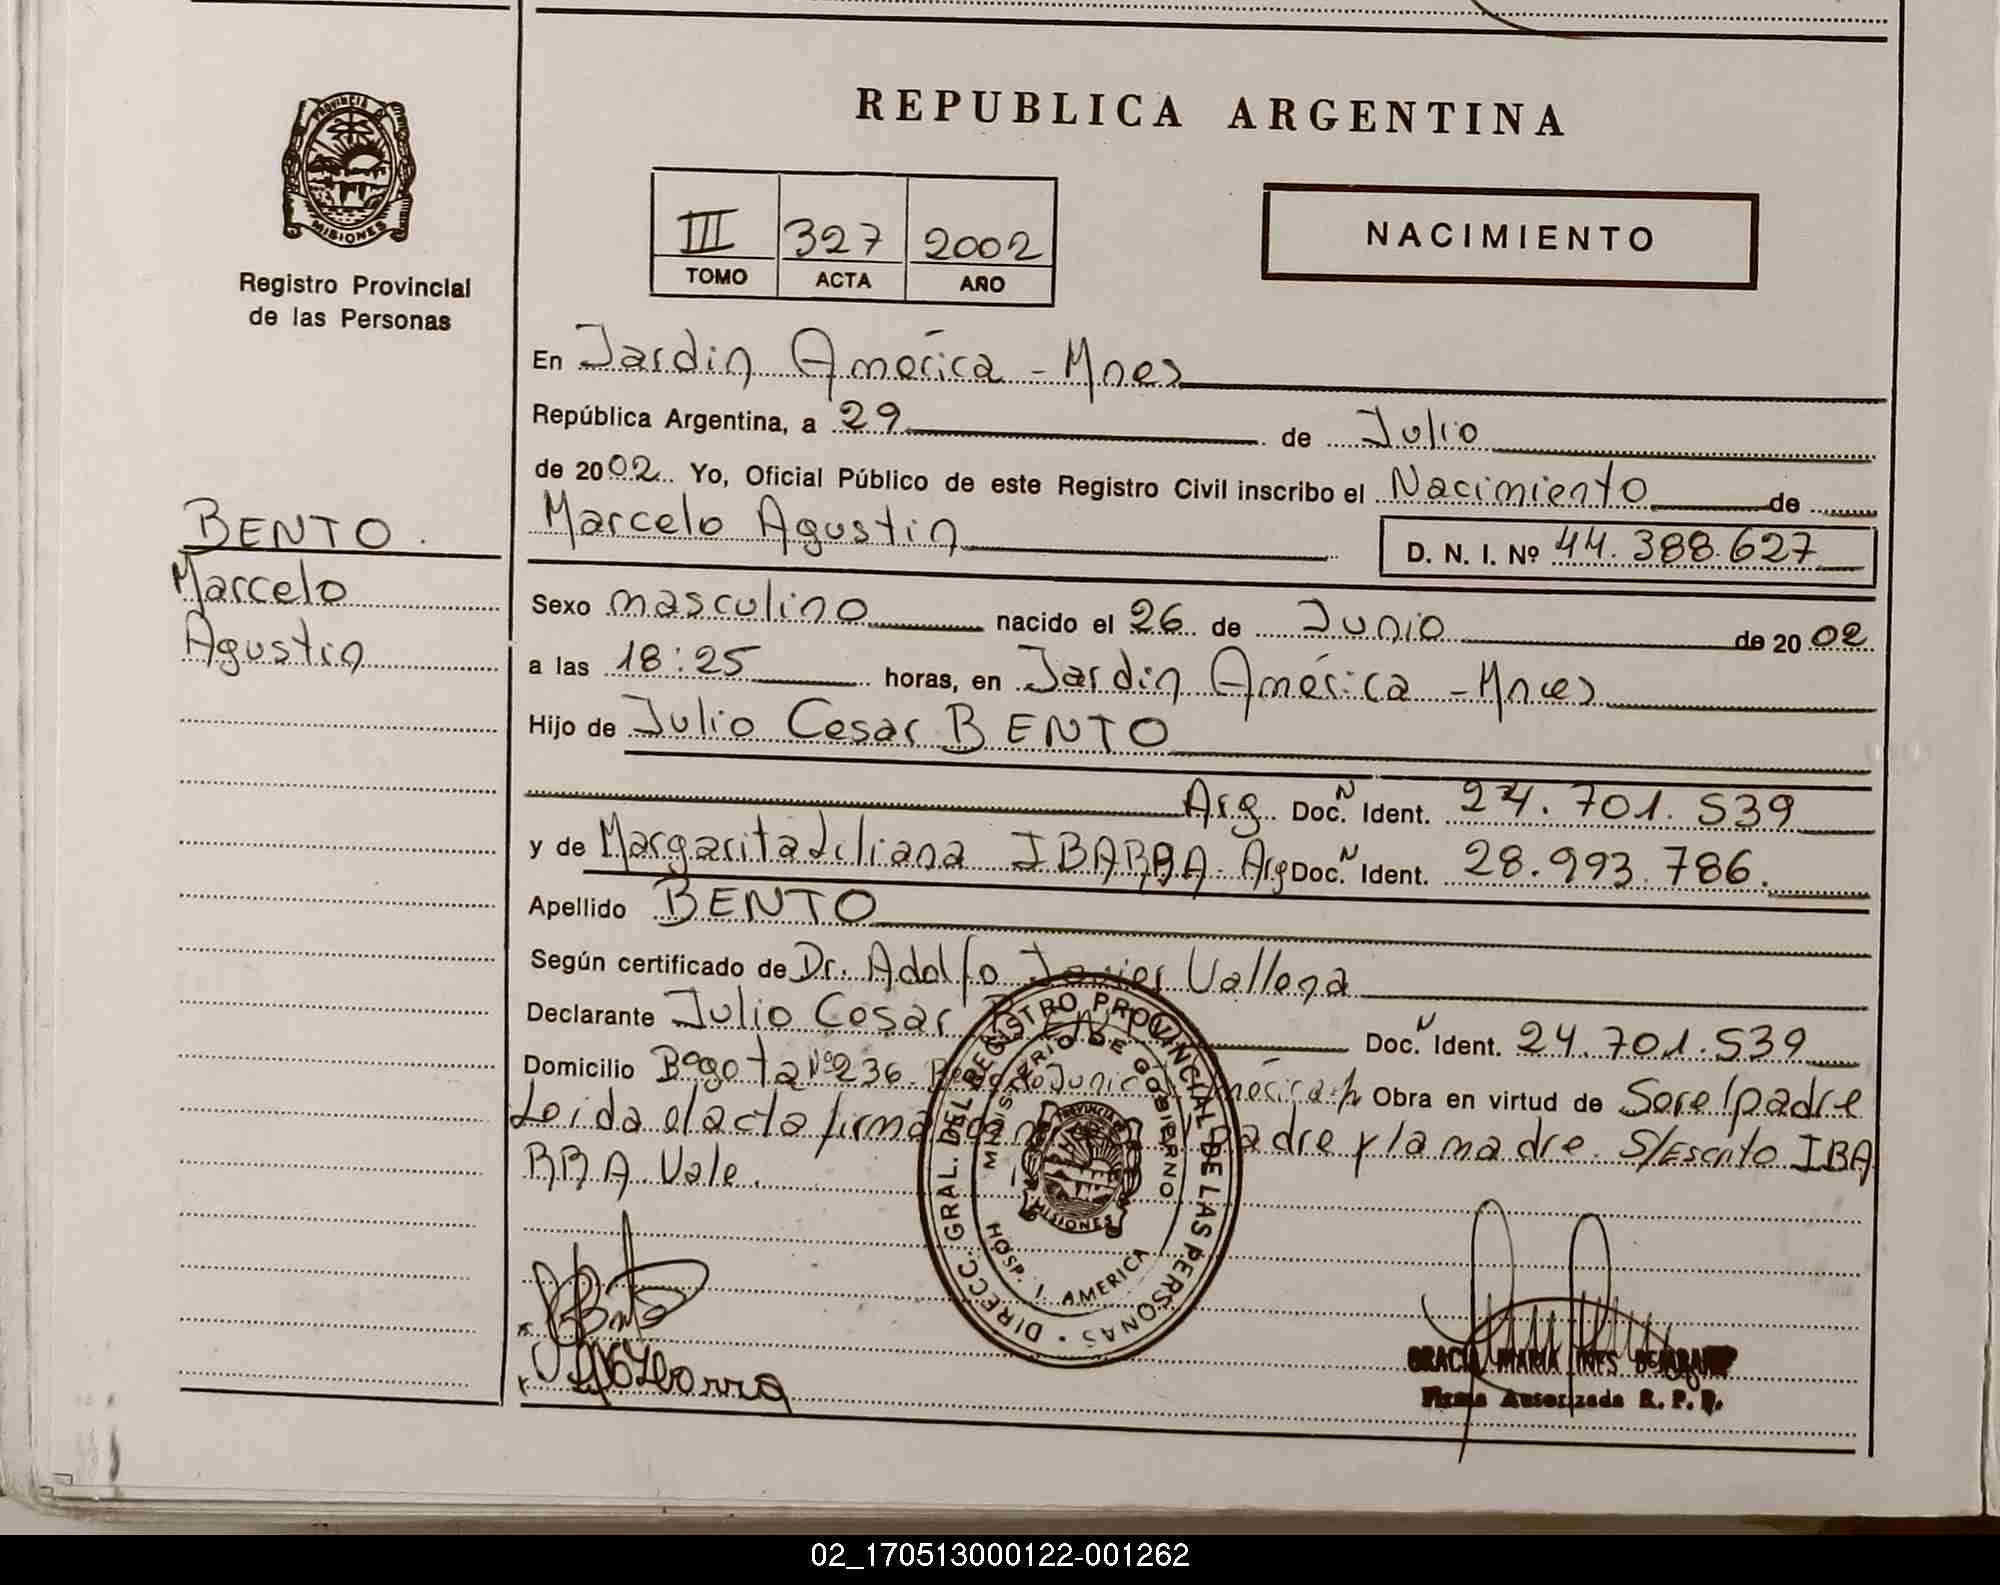 REPUBLICA ARGENTINA
PROVINCIA DE
MISIONES
Registro Provincial
de las Personas
III 327 2002
TOMO ACTA AÑO
NACIMIENTO
En Jardin América - Mnes
República Argentina, a 29 de Julio
de 2002. Yo, Oficial Público de este Registro Civil inscribo el Nacimiento de
Marcelo Agustin D. N. I. Nº 44.388.627
BENTO.
Marcelo
Agustin
Sexo masculino nacido el 26 de Junio de 2002
a las 18:25 horas, en Jardin América - Mnes
Hijo de Julio Cesar BENTO
Arg. Doc. N Ident. 24.701.539
y de Margarita Liliana IBARRA - Arg Doc. N Ident. 28.993.786.
Apellido BENTO
Según certificado de Dr. Adolfo Javier Vallena
Declarante Julio Cesar Doc. N Ident. 24.701.539
Domicilio Bogota Nº 236. Obra en virtud de Ser el padre
Leida el acta firman padre y la madre. S/Escrito IBA
RRA. Vale.
DIRECC. GRAL. DEL REGISTRO PROVINCIAL DE LAS PERSONAS
MINISTERIO DE GOBIERNO
PROVINCIA
MISIONES
HOSP. J. AMERICA
MARIA INES
Firma Autorizada R. P. P.
02_170513000122-001262